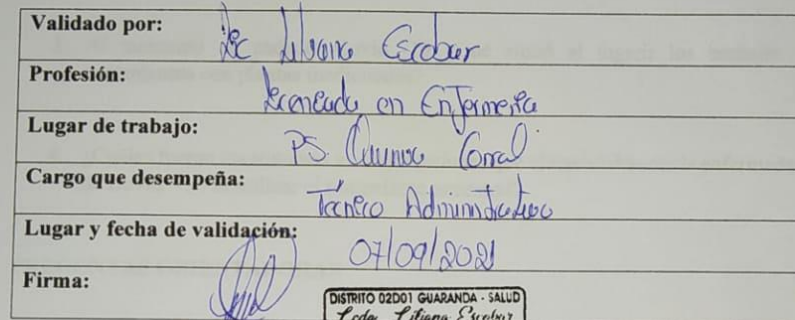 Validado por: Lic Liliana Escobar
Profesión: Licenciada en Enfermería
Lugar de trabajo: PS. Corral
Cargo que desempeña: Técnico Administrativo
Lugar y fecha de validación: 07/09/2021
Firma:
DISTRITO 02D01 GUARANDA - SALUD
Lcda. Liliana Escobar